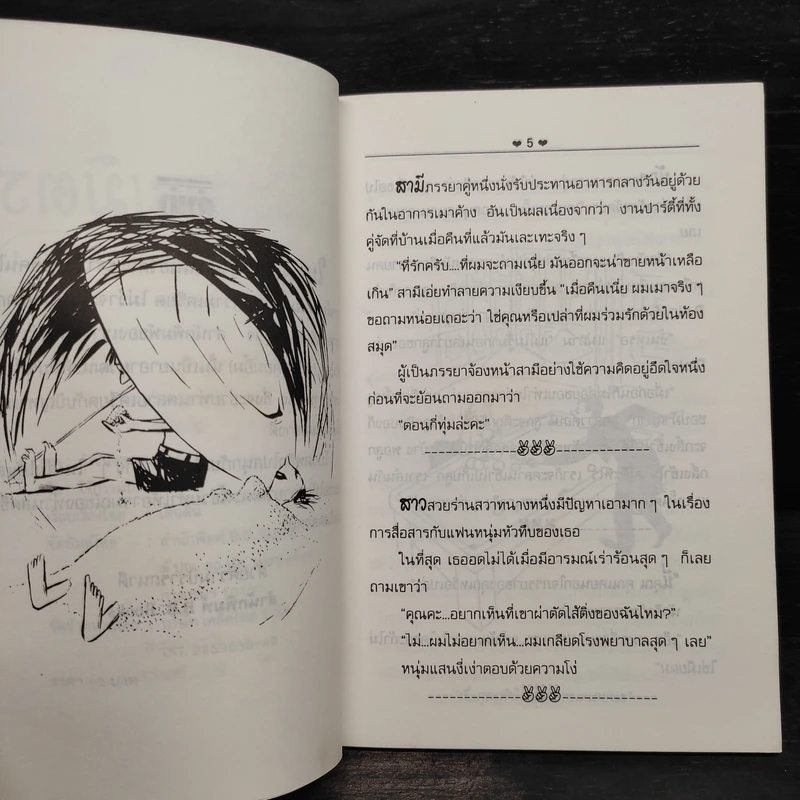 ❤ 5 ❤
สามีภรรยาคู่หนึ่งนั่งรับประทานอาหารกลางวันอยู่ด้วย
กันในอาการเมาค้าง อันเป็นผลเนื่องจากว่า งานปาร์ตี้ที่ทั้ง
คู่จัดที่บ้านเมื่อคืนที่แล้วมันเละเทะจริง ๆ
“ที่รักครับ....ที่ผมจะถามเนี่ย มันออกจะน่าขายหน้าเหลือ
เกิน” สามีเอ่ยทำลายความเงียบขึ้น “เมื่อคืนเนี่ย ผมเมาจริง ๆ
ขอถามหน่อยเถอะว่า ใช่คุณหรือเปล่าที่ผมร่วมรักด้วยในห้อง
สมุด”
ผู้เป็นภรรยาจ้องหน้าสามีอย่างใช้ความคิดอยู่อึดใจหนึ่ง
ก่อนที่จะย้อนถามออกมาว่า
“ตอนกี่ทุ่มล่ะคะ”
สาวสวยร่านสวาทนางหนึ่งมีปัญหาเอามาก ๆ ในเรื่อง
การสื่อสารกับแฟนหนุ่มทัวทึบของเธอ
ในที่สุด เธออดไม่ได้เมื่อมีอารมณ์เร่าร้อนสุด ๆ ก็เลย
ถามเขาว่า
“คุณคะ...อยากเห็นที่เขาผ่าตัดไส้ติ่งของฉันไหม?”
“ไม่...ผมไม่อยากเห็น...ผมเกลียดโรงพยาบาลสุด ๆ เลย”
หนุ่มแสนงี่เง่าตอบด้วยความโง่